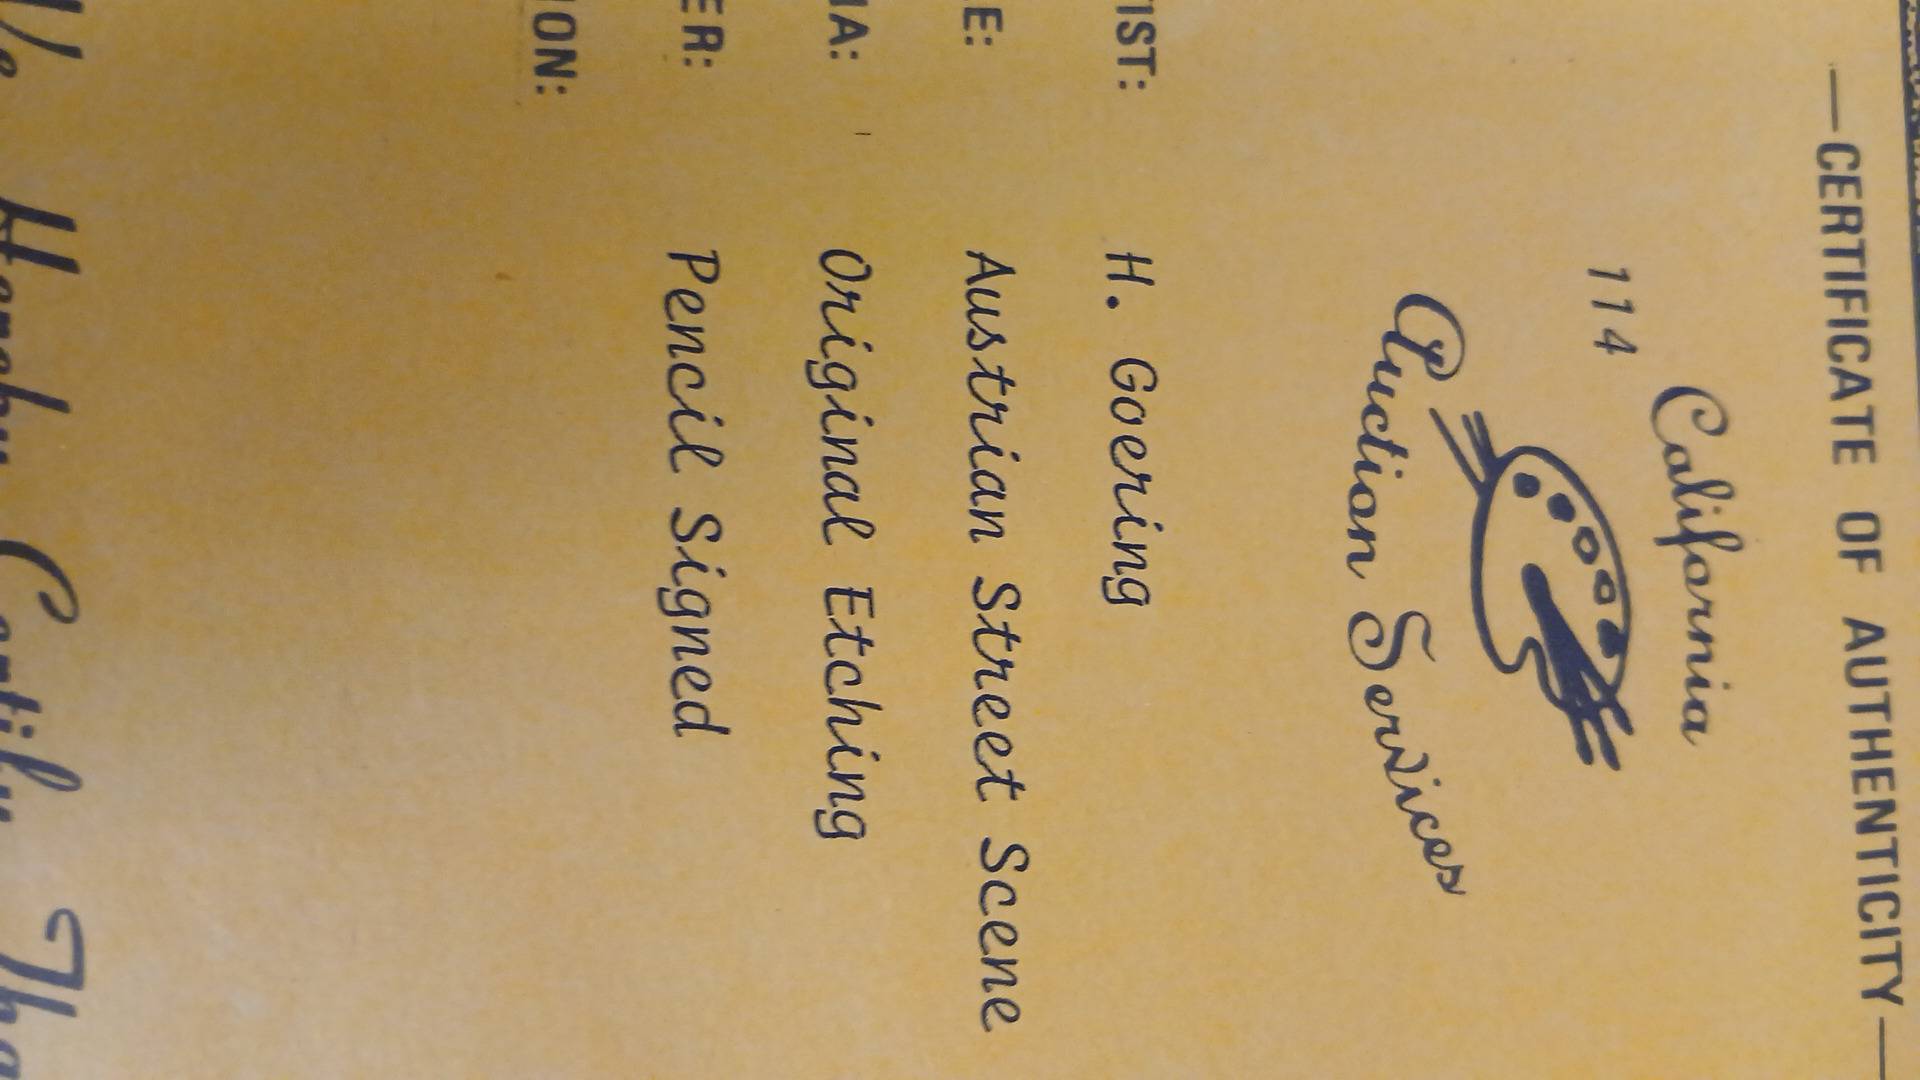 —CERTIFICATE OF AUTHENTICITY—
California
114
Auction Services
IST: H. Goering
E: Austrian Street Scene
IA: Original Etching
ER: Pencil Signed
ION:
We Hereby Certify Tha